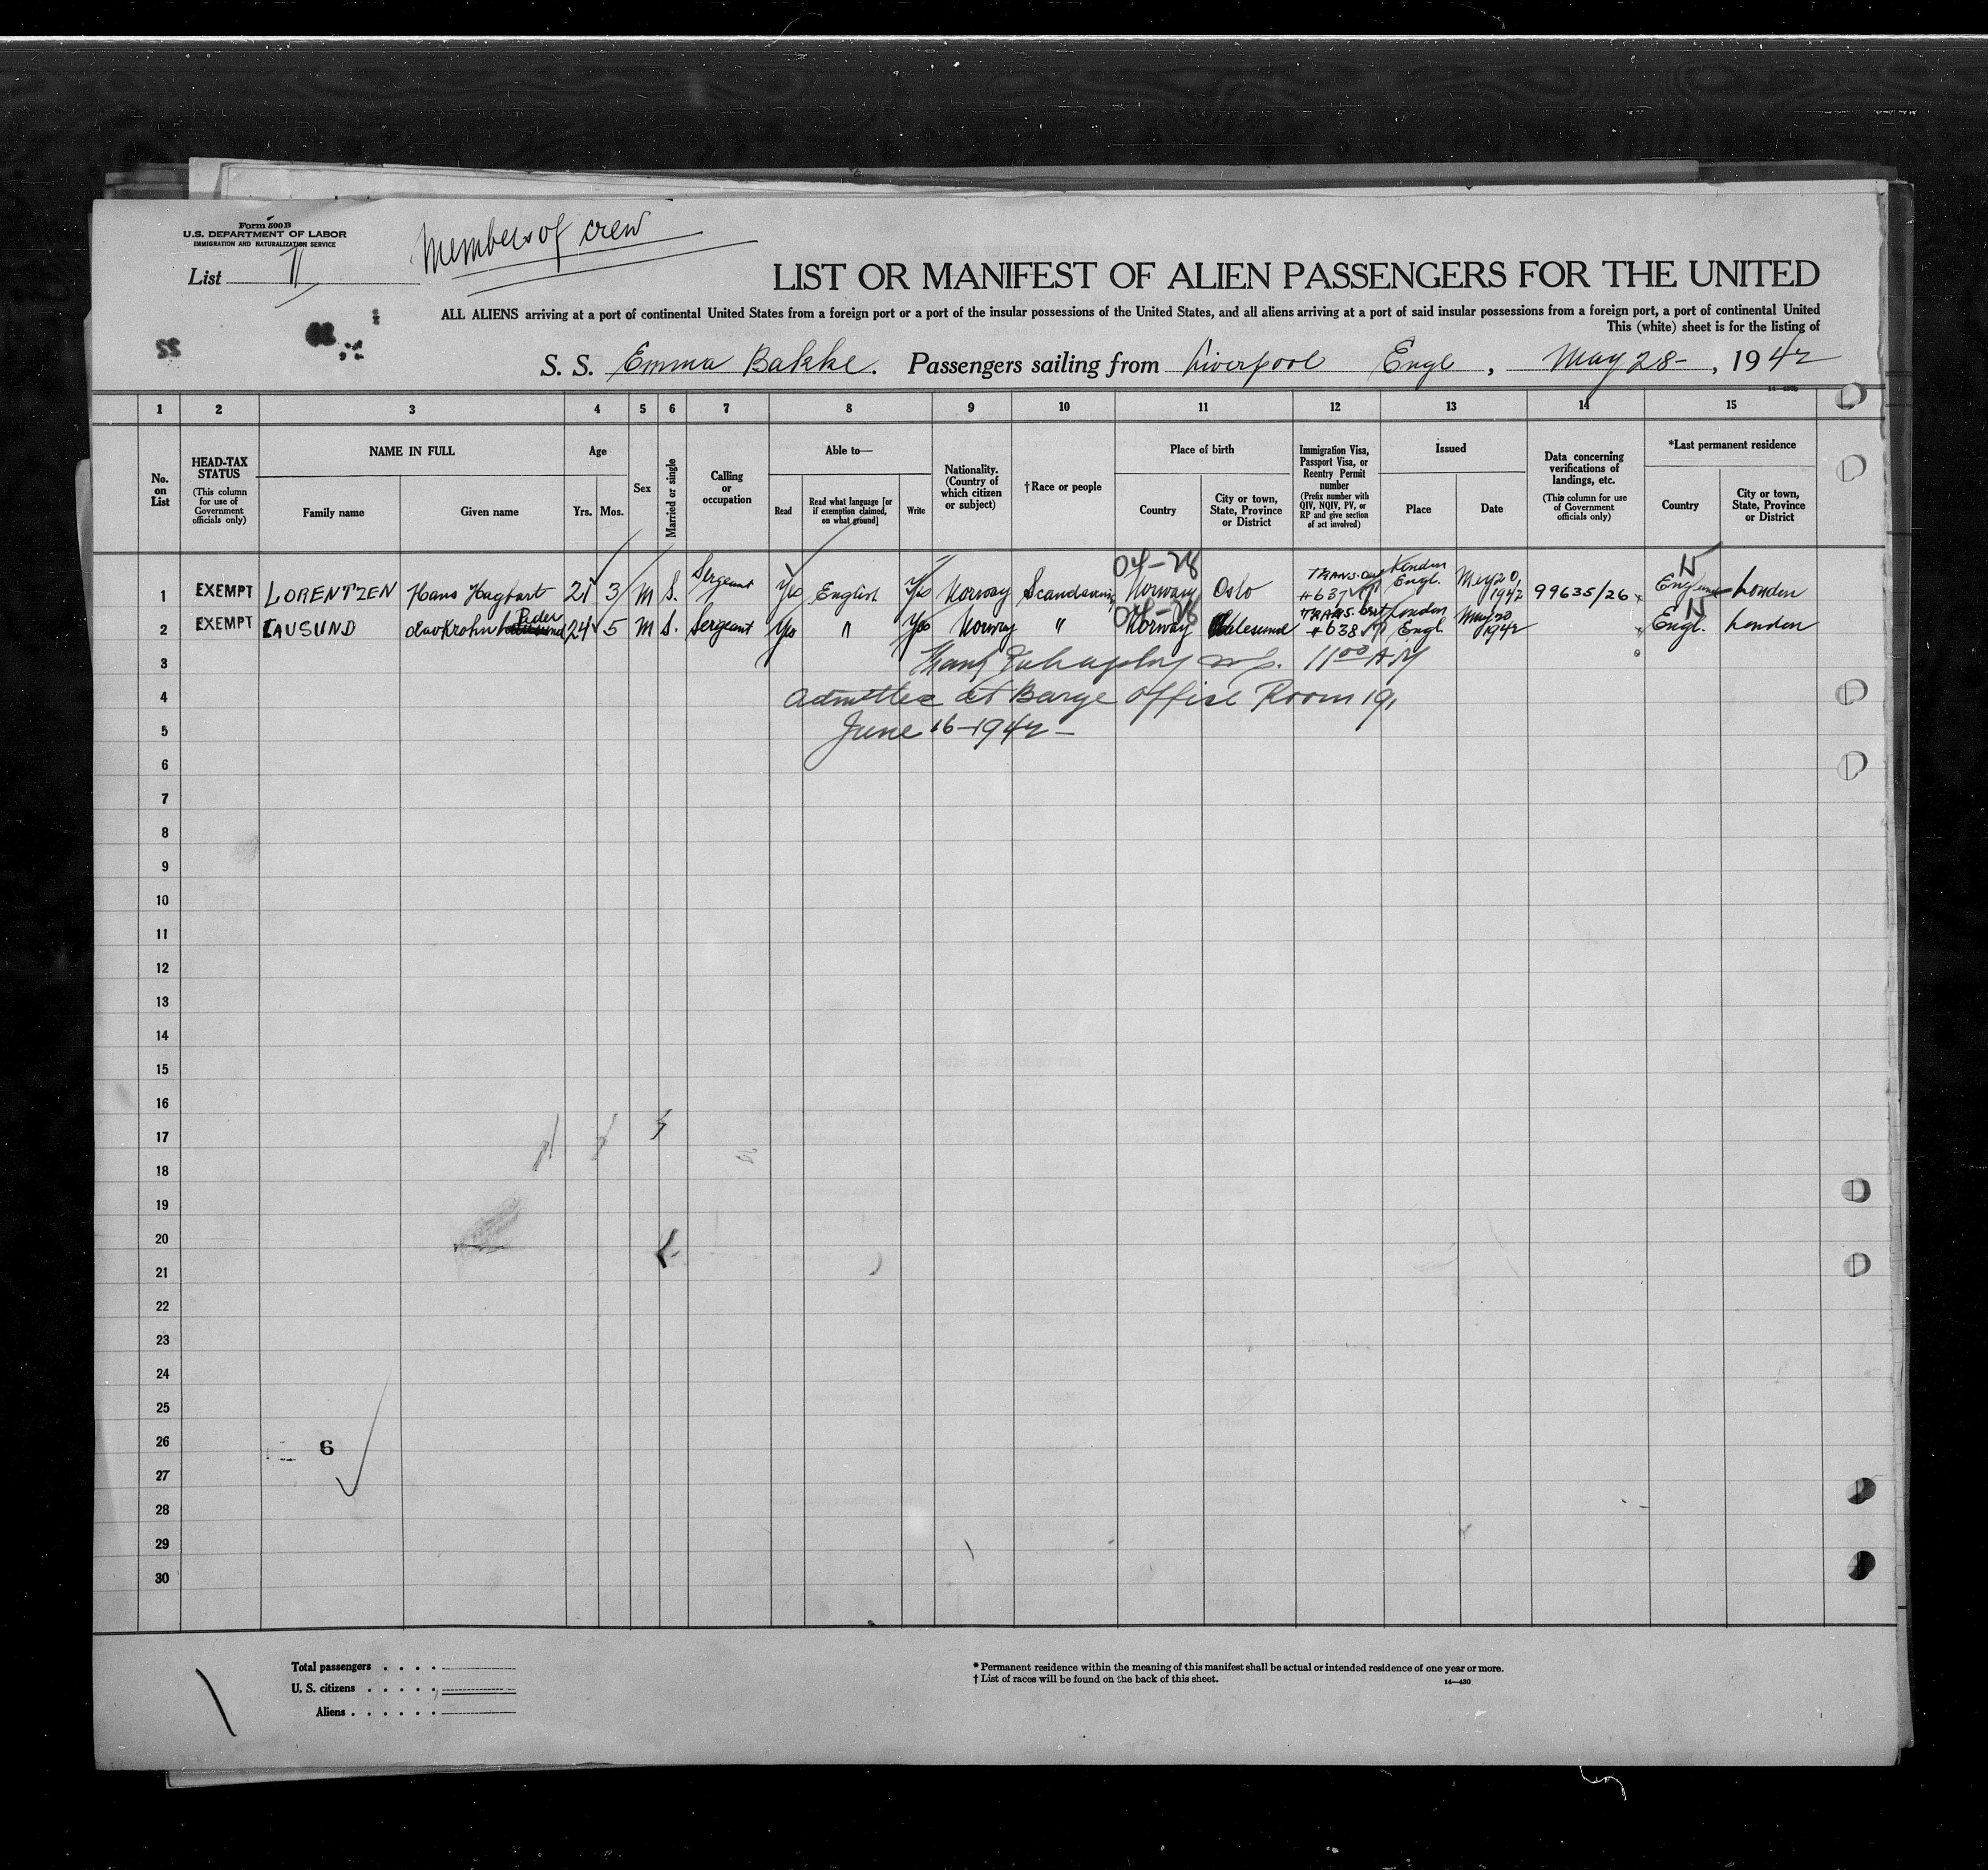 Form 500 B
U.S. DEPARTMENT OF LABOR
IMMIGRATION AND NATURALIZATION SERVICE
Members of crew
List
LIST OR MANIFEST OF ALIEN PASSENGERS FOR THE UNITED
ALL ALIENS arriving at a port of continental United States from a foreign port or a port of the insular possessions of the United States, and all aliens arriving at a port of said insular possessions from a foreign port, a port of continental United
This (white) sheet is for the listing of
S. S. Emma Bakke. Passengers sailing from Liverpool Engl, May 28-, 1942
1 2 3 4 5 6 7 8 9 10 11 12 13 14 15
No. on List
HEAD-TAX STATUS
(This column for use of Government officials only)
NAME IN FULL
Family name
Given name
Age
Yrs. Mos.
Sex
Married or single
Calling or occupation
Able to—
Read
Read what language [or if exemption claimed, on what ground]
Write
Nationality. (Country of which citizen or subject)
†Race or people
Place of birth
Country
City or town, State, Province or District
Immigration Visa, Passport Visa, or Reentry Permit number
(Prefix number with QIV, NQIV, PV, or RP and give section of act involved)
Issued
Place
Date
Data concerning verifications of landings, etc.
(This column for use of Government officials only)
*Last permanent residence
Country
City or town, State, Province or District
1 EXEMPT LORENTZEN Hans Hagbart 21 3 M S. Sergeant Yes English Yes Norway Norway Oslo #637 London Engl. May 20, 1942 99635/26 London
2 EXEMPT LAUSUND Olav Krohn Peder 24 5 M S. Sergeant Yes " Yes Norway " Norway Aalesund #638 London Engl. May 20 1942 Engl. London
3 11 00 AM
4 admitted at Barge Office Room 19,
5 June 16-1942-
6
7
8
9
10
11
12
13
14
15
16
17
18
19
20
21
22
23
24
25
26 6
27
28
29
30
Total passengers . . . .
U. S. citizens . . . . .
Aliens . . . . . .
* Permanent residence within the meaning of this manifest shall be actual or intended residence of one year or more.
† List of races will be found on the back of this sheet.
14—430